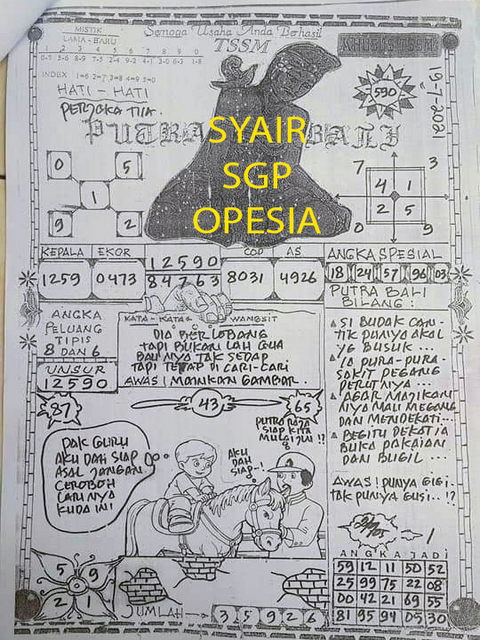 MISTIK
LAMA - BARU
1 2 3 4 5 6 7 8 9 0
Semoga Usaha Anda Berhasil
TSSM
KHUSUS TSSM
INDEX 1=6 2=7 3=8 4=9 5=0
HATI - HATI
590
19-7-2021
PUTRA BALI
SYAIR
SGP
OPESIA
0 5
1
9 2
7 3
4 1
2 5
0 9
KEPALA EKOR
1259 0473
12590
84763
COP AS
8031 4926
ANGKA SPESIAL
18 24 57 96 03
PUTRA BALI
BILANG :
ANGKA
PELUANG
TIPIS
8 DAN 6
UNSUR
12590
KATA - KATA WANGSIT
DIA BERLOBANG
TAPI BUKAN LAH GUA
BAUNYA TAK SEDAP
TAPI TETAP DI CARI-CARI
AWAS! MAINKAN GAMBAR.
SI BUDAK CAN-
TIK PUNYA AKAL
YG BUSUK...
IA PURA-PURA
SAKIT PEGANG
PERUTNYA...
AGAR MAJIKAN
NYA MAU MEGANG
DAN MENDEKATI...
BEGITU DEKAT IA
BUKA PAKAIAN
DAN BUGIL...
AWAS! PUNYA GIGI
TAK PUNYA GUSI..!?
87
43
65
PAK GURU
AKU DAH SIAP
ASAL JANGAN
CEROBOH
LARINYA
KUDA INI
AKU
DAH
SIAP-!
PUTRO RAJA
SIAP KITA
MULAI INI !!
5 9
2 1
JUMLAH → 35926
ANGKA JADI
59 12 11 50 52
25 99 75 22 08
00 42 21 69 55
81 95 94 05 30